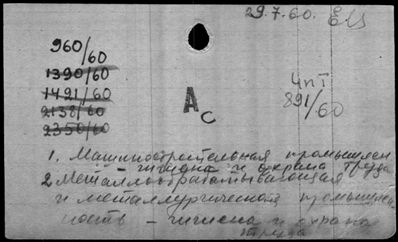 29.7.60.
960/60
1390/60
1421/60
2138/60
2350/60
Ас
ЧпI
891/60
1. Машиностроительная промышлен
- гигиена и охрана труда
2 Металлообрабатывающая
и металлургическая промышлен
ность - гигиена и охрана
труда